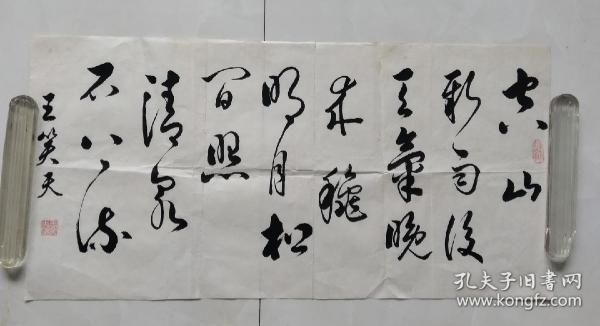 空山
新雨後
天氣晚
来龝
明月松
间照
清泉
石上流
王笑天
孔夫子旧书网
www.kongfz.com